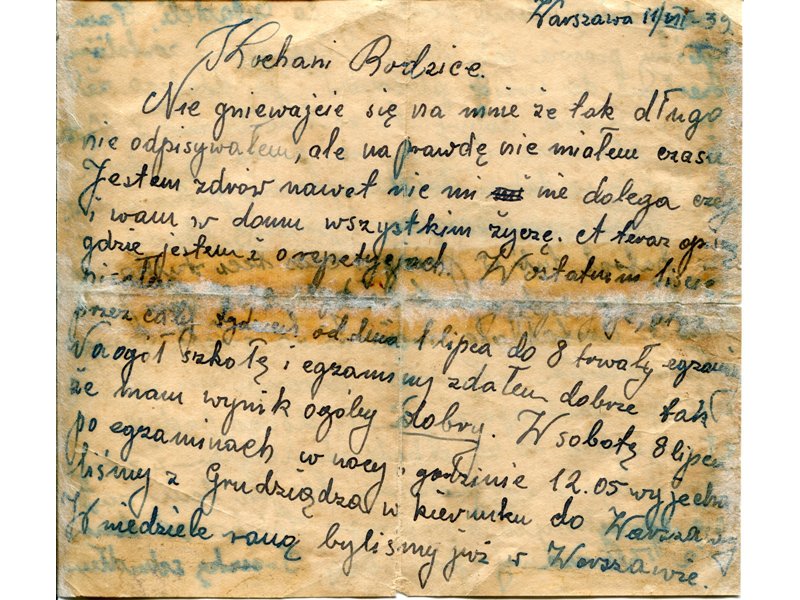 Warszawa 11/VII-39.
Kochani Rodzice.
Nie gniewajcie się na mnie że tak długo
nie odpisywałem, ale naprawdę nie miałem czasu
Jestem zdrów nawet nic mi nie dolega czego
i wam w domu wszystkim życzę. A teraz opi
gdzie jestem i o repetycjach. W ostatnim liście
przez cały tydzień od dnia 1 lipca do 8 trwały egzami
Naogół szkołę i egzaminy zdałem dobrze tak
że mam wynik ogólny dobry. W sobotę 8 lipca
po egzaminach w nocy o godzinie 12.05 wyjecha
liśmy z Grudziądza w kierunku do Warszawy
W niedziele raną byliśmy już w Warszawie.